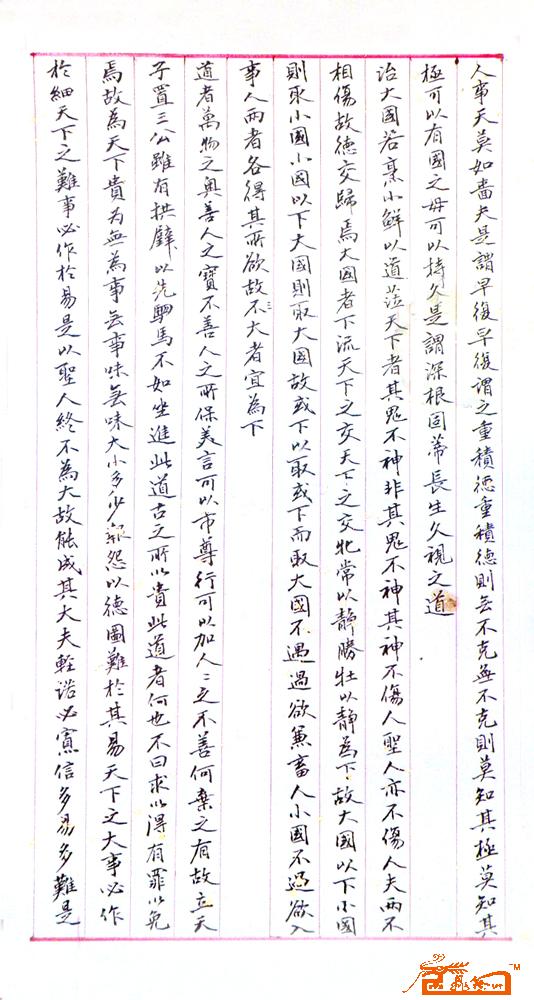 人事天莫如嗇夫是謂早復早復謂之重積德重積德則无不克無不克則莫知其極莫知其
極可以有國之母可以持久是謂深根固蒂長生久視之道
治大國若烹小鮮以道莅天下者其鬼不神非其鬼不神其神不傷人聖人亦不傷人夫兩不
相傷故德交歸焉大國者下流天下之交天下之交牝常以靜勝牡以靜為下故大國以下小國
則取小國小國以下大國則取大國故或下以取或下而取大國不過過欲兼畜人小國不過欲入
事人兩者各得其所欲故不大者宜為下
道者萬物之奥善人之寶不善人之所保美言可以市尊行可以加人〻之不善何棄之有故立天
子置三公雖有拱璧以先駟馬不如坐進此道古之所以貴此道者何也不曰求以得有罪以免
焉故為天下貴为無為事无事味無味大小多少報怨以德圖難於其易天下之大事必作
於細天下之難事必作於易是以聖人終不為大故能成其大夫輕诺必寡信多易多難是